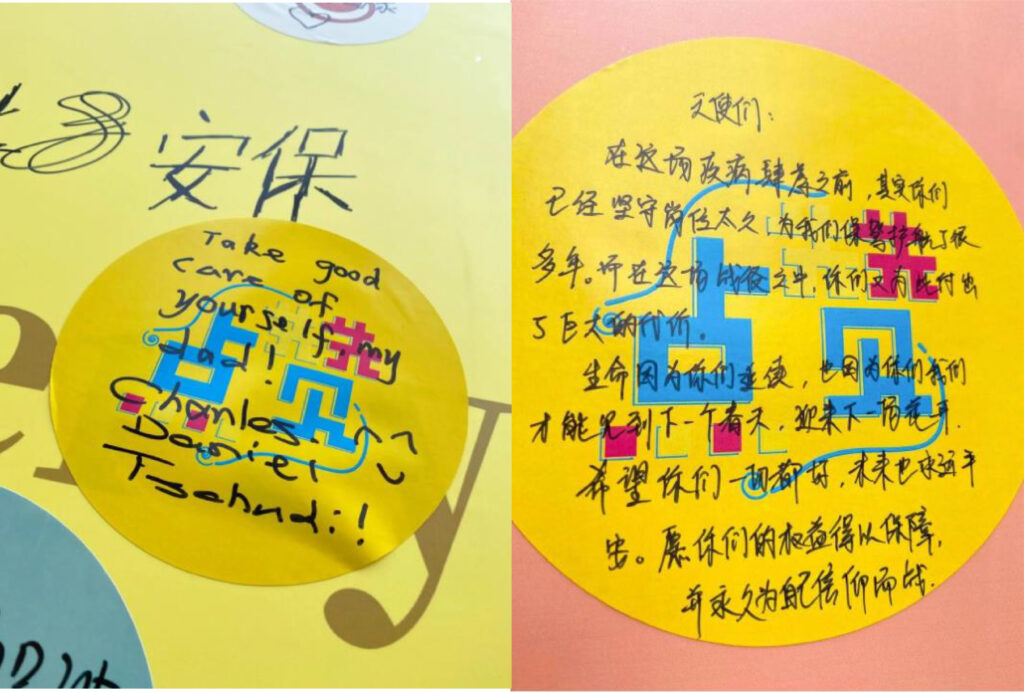 安保
Take good
care of
yourself, my
dad!
Charles.
Daniel
Tschudi!
天使们：
在这场疫病肆虐之前，其实你们
已经坚守岗位太久，为我们保驾护航了很
多年。而在这场战役之中，你们又为此付出
了巨大的代价。
生命因为你们延续，也因为你们我们
才能见到下一个春天，迎来下一场花开.
希望你们一切都好，未来也永远平
安。愿你们的权益得以保障，
并永久为自己信仰而战.